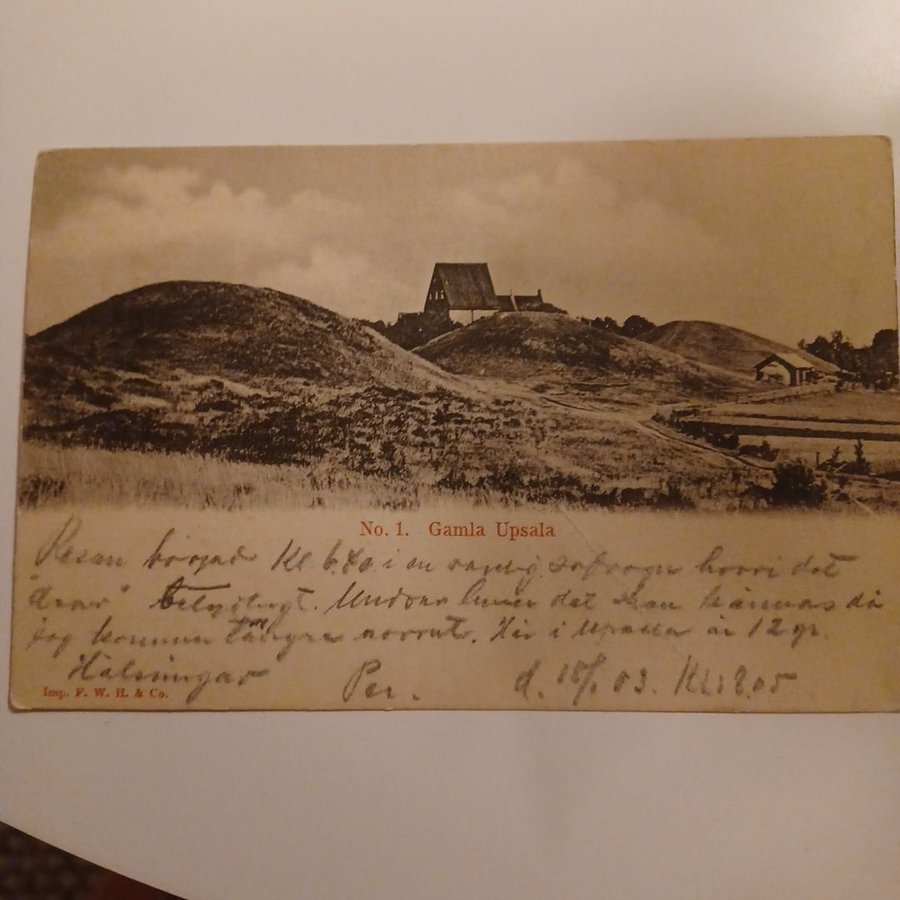 No. 1. Gamla Upsala
Resan började Kl 6.40 i en vanlig sofvagn hvari det
"drar" betydligt. Undrar huru det skan kännas då
jag kommer längre norrut. Här i Upsala är 12 gr.
Hälsningar Per. d. 18/1 03. Kl: 8,05
Imp. F. W. H. & Co.